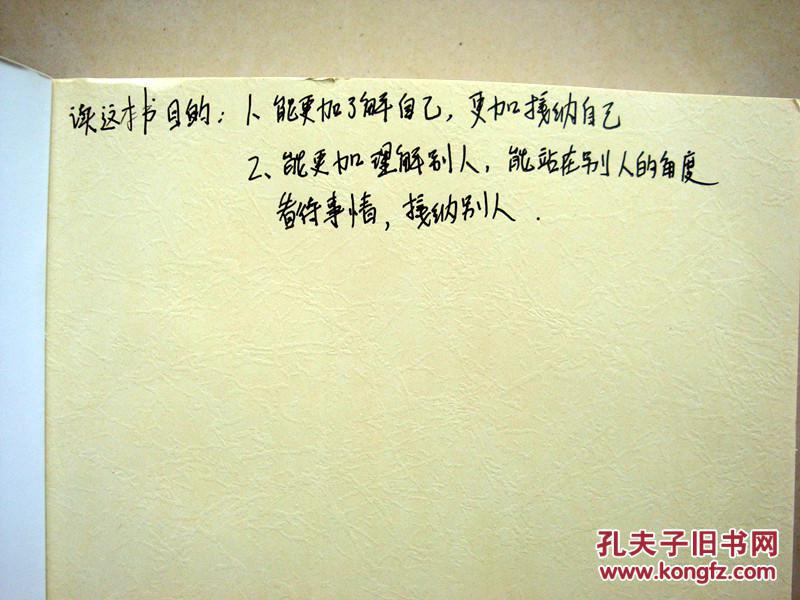 读这本书目的：1、能更加了解自己，更加接纳自己
2、能更加理解别人，能站在别人的角度
看待事情，接纳别人．
孔夫子旧书网
www.kongfz.com